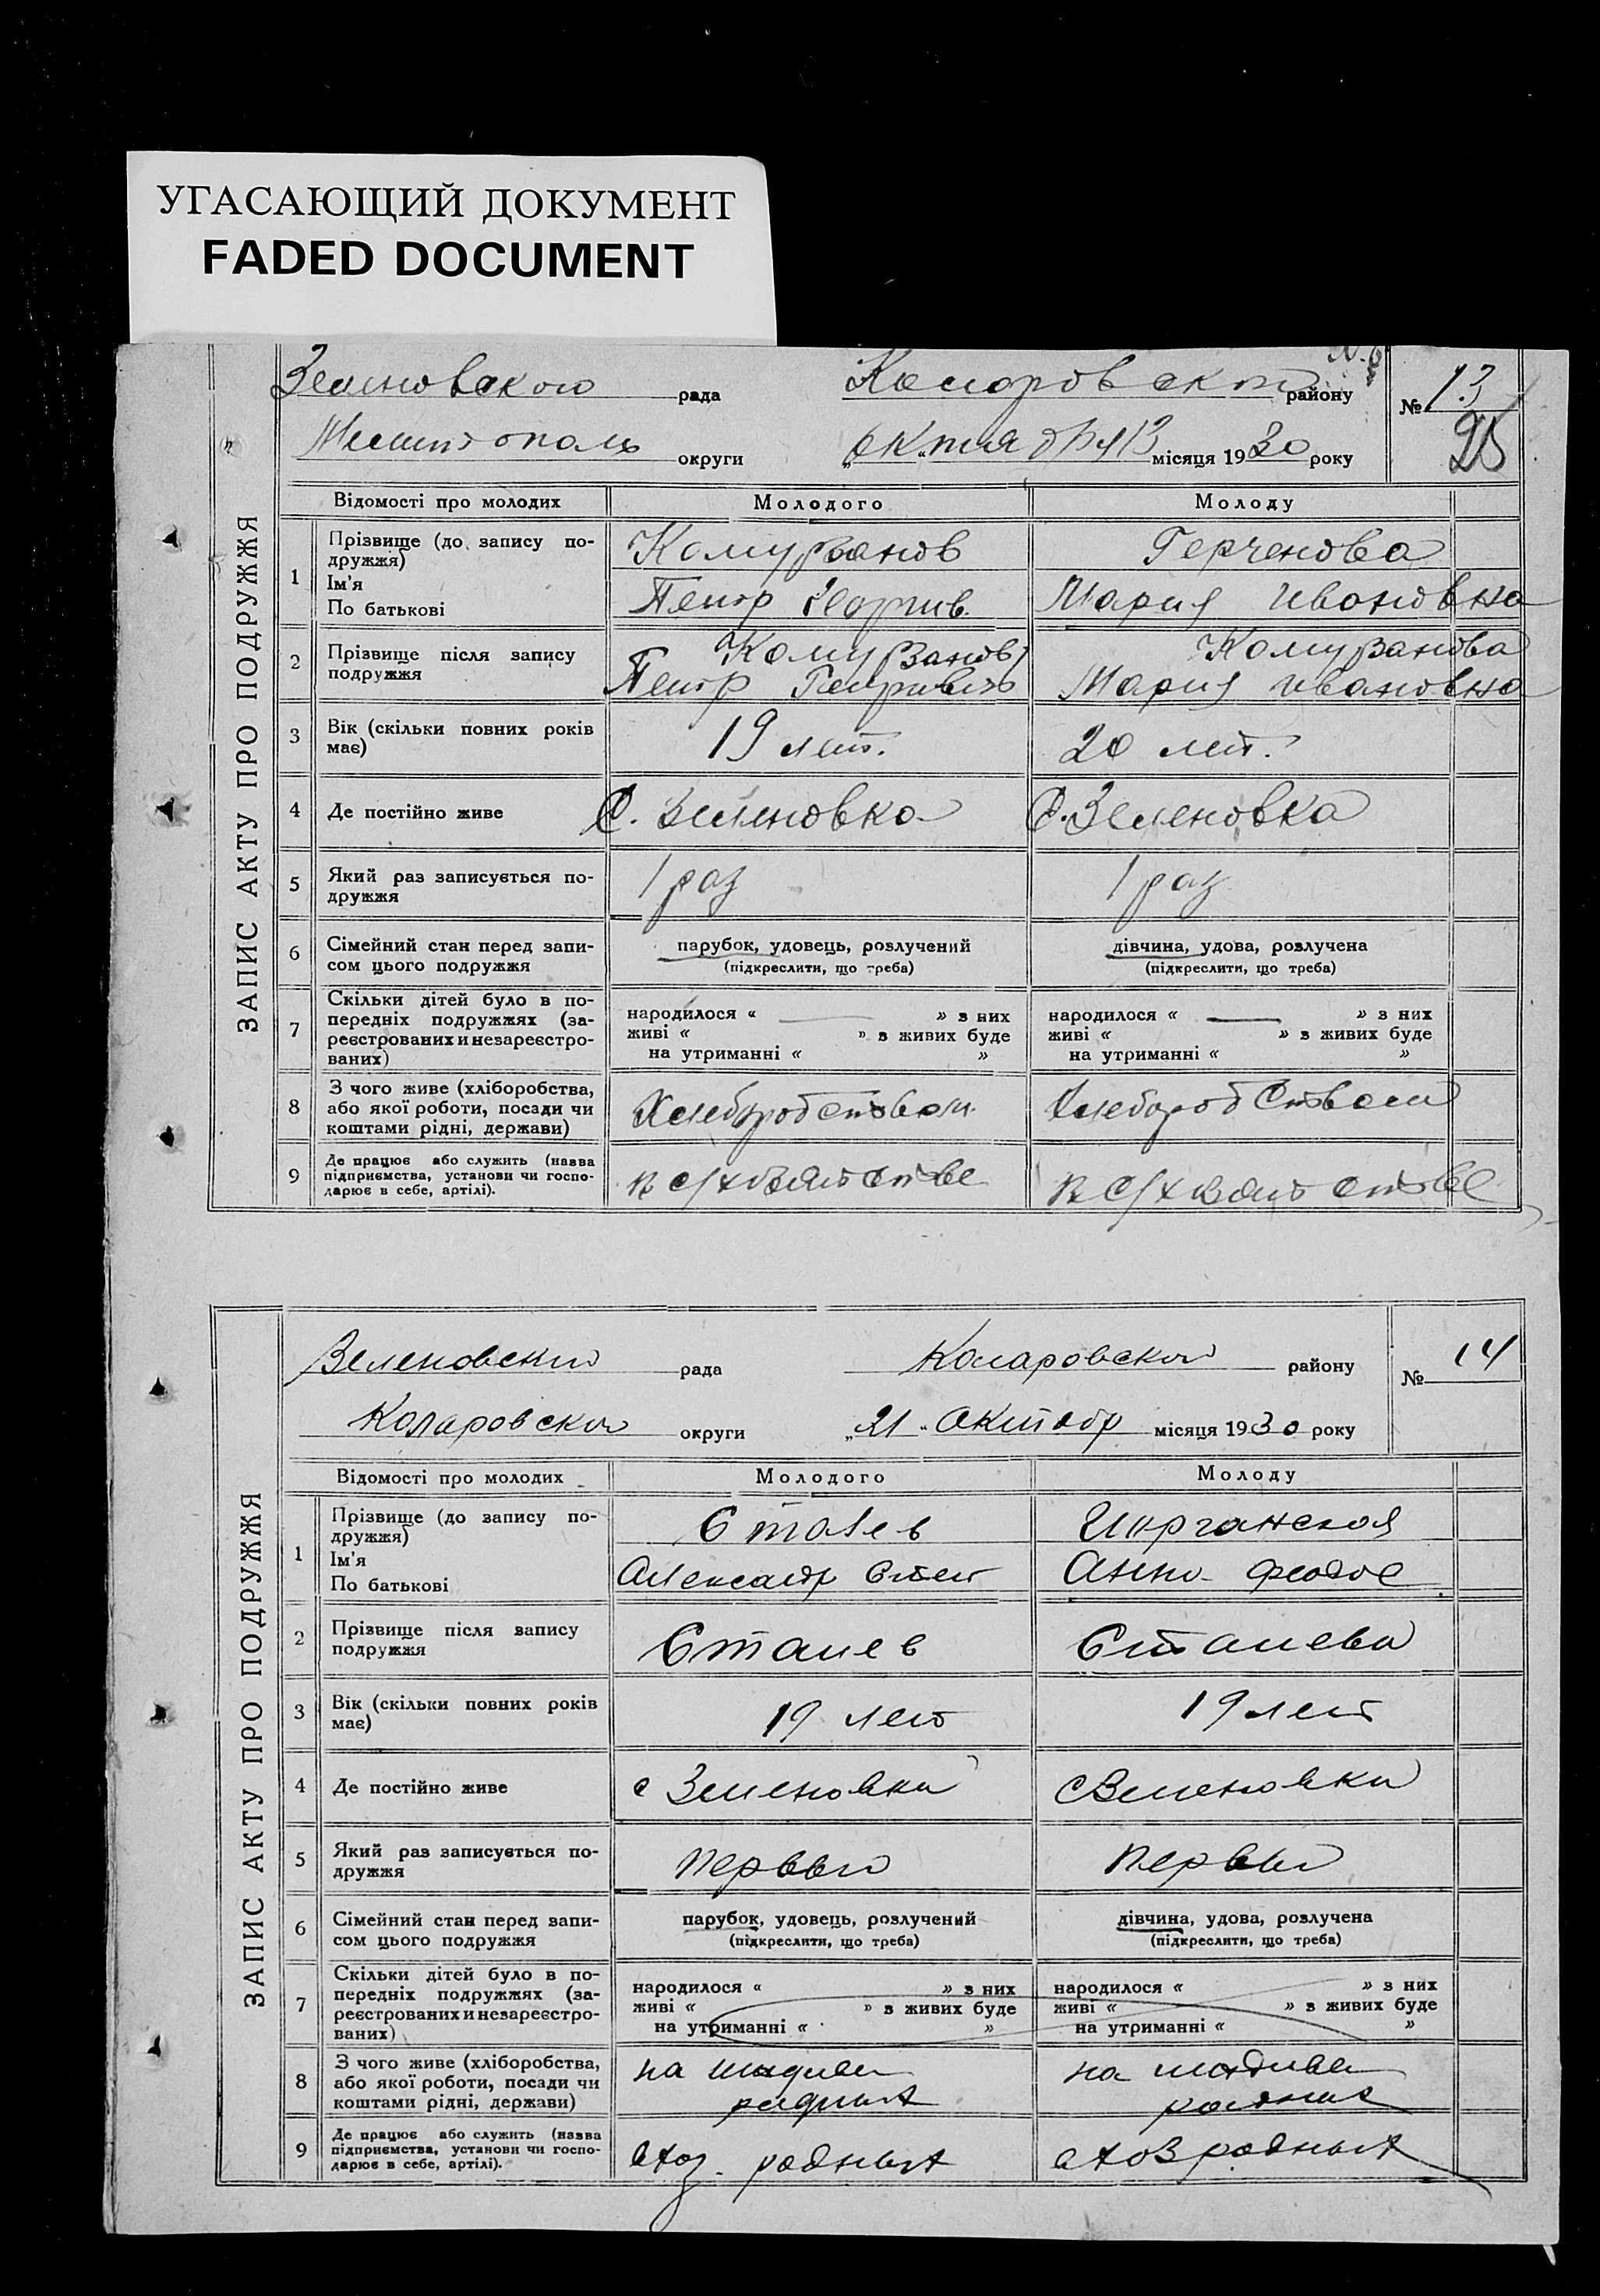 УГАСАЮЩИЙ ДОКУМЕНТ
FADED DOCUMENT
ЗАПИС АКТУ ПРО ПОДРУЖЖЯ
Зеленовского рада района району № 13
округи октября 13 місяця 1930 року 25
Відомості про молодих Молодого Молоду
1 Прізвище (до запису по-
дружжя)
Ім'я
По батькові
Комурзанов Герченова
Петр Георгив. Мария Ивановна
2 Прізвище після запису
подружжя
Комурзанов Комурзанова
Петр Мария Ивановна
3 Вік (скільки повних років
має)
19 лет. 20 лет.
4 Де постійно живе С. Зеленовка С. Зеленовка
5 Який раз записується по-
дружжя
1 раз 1 раз
6 Сімейний стан перед запи-
сом цього подружжя
парубок, удовець, розлучений дівчина, удова, розлучена
(підкреслити, що треба) (підкреслити, що треба)
7 Скільки дітей було в по-
передніх подружжях (за-
реєстрованих и незареєстро-
ваних)
народилося « » з них народилося « » з них
живі « » з живих буде живі « » з живих буде
на утриманні « » на утриманні « »
8 З чого живе (хліборобства,
або якої роботи, посади чи
коштами рідні, держави)
Хлебородством Хлебородством
9 Де працює або служить (назва
підприємства, установи чи госпо-
дарює в себе, артілі).
ЗАПИС АКТУ ПРО ПОДРУЖЖЯ
Зеленовский рада Коларовский району № 14
Коларовской округи „21" Октябр місяця 1930 року
Відомості про молодих Молодого Молоду
1 Прізвище (до запису по-
дружжя)
Ім'я
По батькові
Сталев
Александр Степ Анна Федос
2 Прізвище після запису
подружжя
Сталев Сталева
3 Вік (скільки повних років
має)
19 лет 19 лет
4 Де постійно живе с Зеленовки с Зеленовки
5 Який раз записується по-
дружжя
первый первый
6 Сімейний стан перед запи-
сом цього подружжя
парубок, удовець, розлучений дівчина, удова, розлучена
(підкреслити, що треба) (підкреслити, що треба)
7 Скільки дітей було в по-
передніх подружжях (за-
реєстрованих и незареєстро-
ваних)
народилося « » з них народилося « » з них
живі « » з живих буде живі « » з живих буде
на утриманні « » на утриманні « »
8 З чого живе (хліборобства,
або якої роботи, посади чи
коштами рідні, держави)
на иждиве на иждиве
родных родных
9 Де працює або служить (назва
підприємства, установи чи госпо-
дарює в себе, артілі).
схоз. родных схоз родных